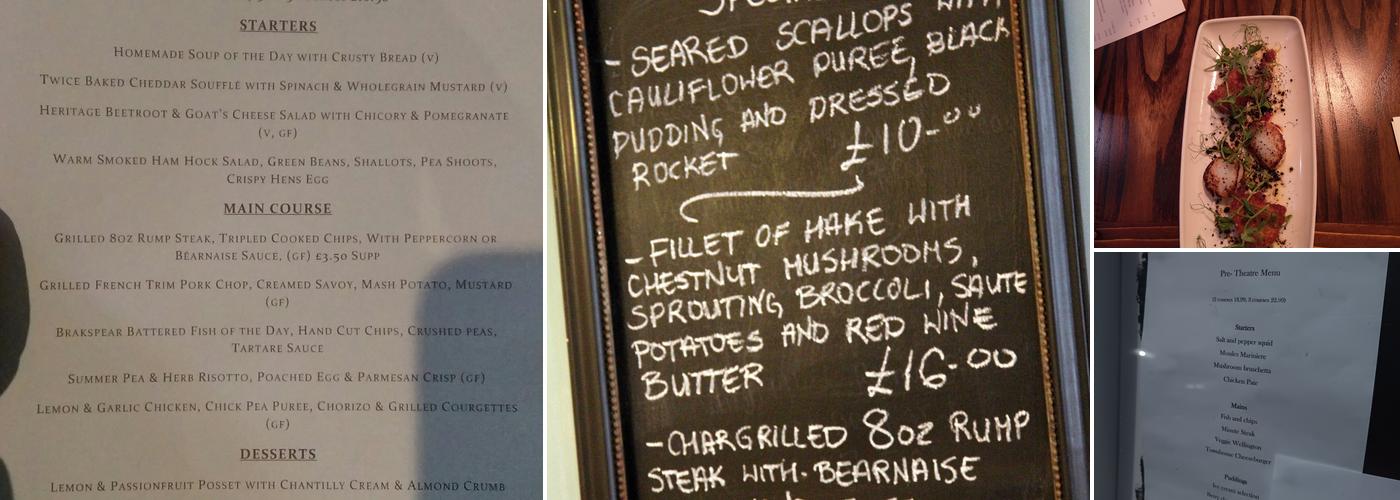 STARTERS
HOMEMADE SOUP OF THE DAY WITH CRUSTY BREAD (V)
TWICE BAKED CHEDDAR SOUFFLÉ WITH SPINACH & WHOLEGRAIN MUSTARD (V)
HERITAGE BEETROOT & GOAT'S CHEESE SALAD WITH CHICORY & POMEGRANATE
(V, GF)
WARM SMOKED HAM HOCK SALAD, GREEN BEANS, SHALLOTS, PEA SHOOTS,
CRISPY HENS EGG
MAIN COURSE
GRILLED 8OZ RUMP STEAK, TRIPLED COOKED CHIPS, WITH PEPPERCORN OR
BÉARNAISE SAUCE, (GF) £3.50 SUPP
GRILLED FRENCH TRIM PORK CHOP, CREAMED SAVOY, MASH POTATO, MUSTARD
(GF)
BRAKSPEAR BATTERED FISH OF THE DAY, HAND CUT CHIPS, CRUSHED PEAS,
TARTARE SAUCE
SUMMER PEA & HERB RISOTTO, POACHED EGG & PARMESAN CRISP (GF)
LEMON & GARLIC CHICKEN, CHICK PEA PUREE, CHORIZO & GRILLED COURGETTES
(GF)
DESSERTS
LEMON & PASSIONFRUIT POSSET WITH CHANTILLY CREAM & ALMOND CRUMB
- SEARED SCALLOPS WITH
CAULIFLOWER PUREE, BLACK
PUDDING AND DRESSED
ROCKET £10-00
- FILLET OF HAKE WITH
CHESTNUT MUSHROOMS,
SPROUTING BROCCOLI, SAUTE
POTATOES AND RED WINE
BUTTER £16-00
- CHARGRILLED 8oz RUMP
STEAK WITH BEARNAISE
Pre- Theatre Menu
(2 courses 18.99, 3 courses 22.99)
Starters
Salt and pepper squid
Moules Mariniere
Mushroom bruschetta
Chicken Pate
Mains
Fish and chips
Minute Steak
Veggie Wellington
Townhouse Cheeseburger
Puddings
Ice cream selection